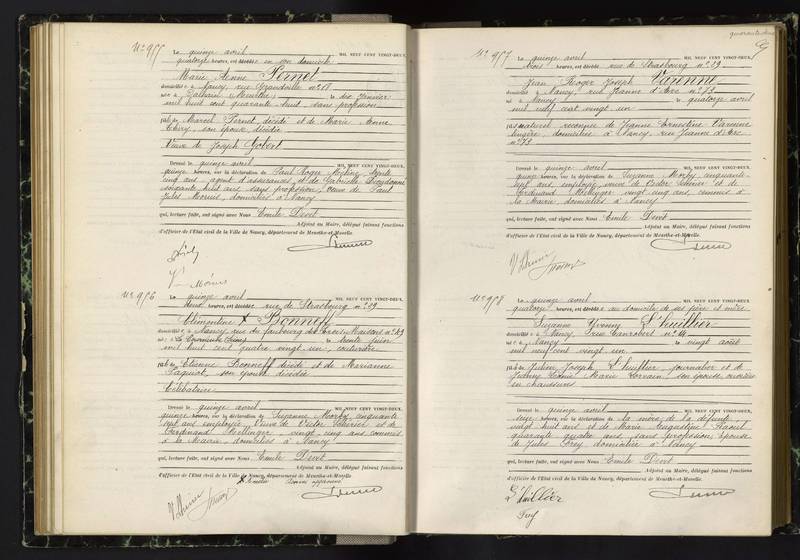 N° 955
Le quinze avril MIL NEUF CENT VINGT-DEUX,
quatorze heures, est décédée en son domicile
Marie Anne Pernet
domiciliée à Nancy, rue Grandville n° 17
née à (Meurthe) le dix janvier
mil huit cent quarante huit, sans profession
fille de Marcel Pernet, décédé et de Marie Anne
Thiry, son épouse, décédée
Veuve de Joseph Gobert
Dressé le quinze avril MIL NEUF CENT VINGT-DEUX,
quinze heures, sur la déclaration de Paul Roger trente
cinq ans, agent d'assurances et de Gabrielle Dieudonné
soixante huit ans, sans profession, veuve de Paul
Jules domiciliés à Nancy
qui, lecture faite, ont signé avec Nous Emile Devit
Adjoint au Maire, délégué faisant fonctions
d'officier de l'Etat civil de la Ville de Nancy, département de Meurthe-et-Moselle.
N° 956
Le quinze avril MIL NEUF CENT VINGT-DEUX,
heures, est décédée rue de Strasbourg n° 39
Clémentine Bonneff
domiciliée à Nancy, rue du faubourg des Trois Maisons n° 49
née à le trente juin
mil huit cent quatre vingt un, couturière
fille de Etienne Bonneff décédé et de Marianne
Paquiot, son épouse décédée
Célibataire
Dressé le quinze avril MIL NEUF CENT VINGT-DEUX,
quinze heures, sur la déclaration de Suzanne Morby, cinquante
sept ans, employée, veuve de Victor et de
Ferdinand Bellinger, vingt cinq ans, commis
à la Mairie, domiciliés à Nancy
qui, lecture faite, ont signé avec Nous Emile Devit
Adjoint au Maire, délégué faisant fonctions
d'officier de l'Etat civil de la Ville de Nancy, département de Meurthe-et-Moselle.
N° 957
Le quinze avril MIL NEUF CENT VINGT-DEUX,
trois heures, est décédé rue de Strasbourg n° 39
Jean Roger Joseph Varenne
domicilié à Nancy, rue Jeanne d'Arc n° 73
né à Nancy le quatorze avril
mil neuf cent vingt un
fils naturel reconnu de Jeanne Ernestine Varenne
lingère, domiciliée à Nancy, rue Jeanne d'Arc
n° 73
Dressé le quinze avril MIL NEUF CENT VINGT-DEUX,
quinze heures, sur la déclaration de Suzanne Morby, cinquante
sept ans, employée, veuve de Victor et de
Ferdinand Bellinger, vingt cinq ans, commis à
la Mairie, domiciliés à Nancy
qui, lecture faite, ont signé avec Nous Emile Devit
Adjoint au Maire, délégué faisant fonctions
d'officier de l'Etat civil de la Ville de Nancy, département de Meurthe-et-Moselle.
N° 958
Le quinze avril MIL NEUF CENT VINGT-DEUX,
quatorze heures, est décédée au domicile de ses père et mère
Suzanne Yvonne L'huillier
domiciliée à Nancy, rue Canrobert n° 14
née à Nancy le vingt août
mil neuf cent vingt un
fille de Julien Joseph L'huillier, journalier et de
Marie Lorrain, son épouse, ouvrière
en chaussures
Dressé le quinze avril MIL NEUF CENT VINGT-DEUX,
seize heures, sur la déclaration de la mère de la défunte
vingt huit ans et de Marie Augustine
quarante quatre ans, sans profession, épouse
de Jules domiciliés à Nancy
qui, lecture faite, ont signé avec Nous Emile Devit
Adjoint au Maire, délégué faisant fonctions
d'officier de l'Etat civil de la Ville de Nancy, département de Meurthe-et-Moselle.
L'huillier